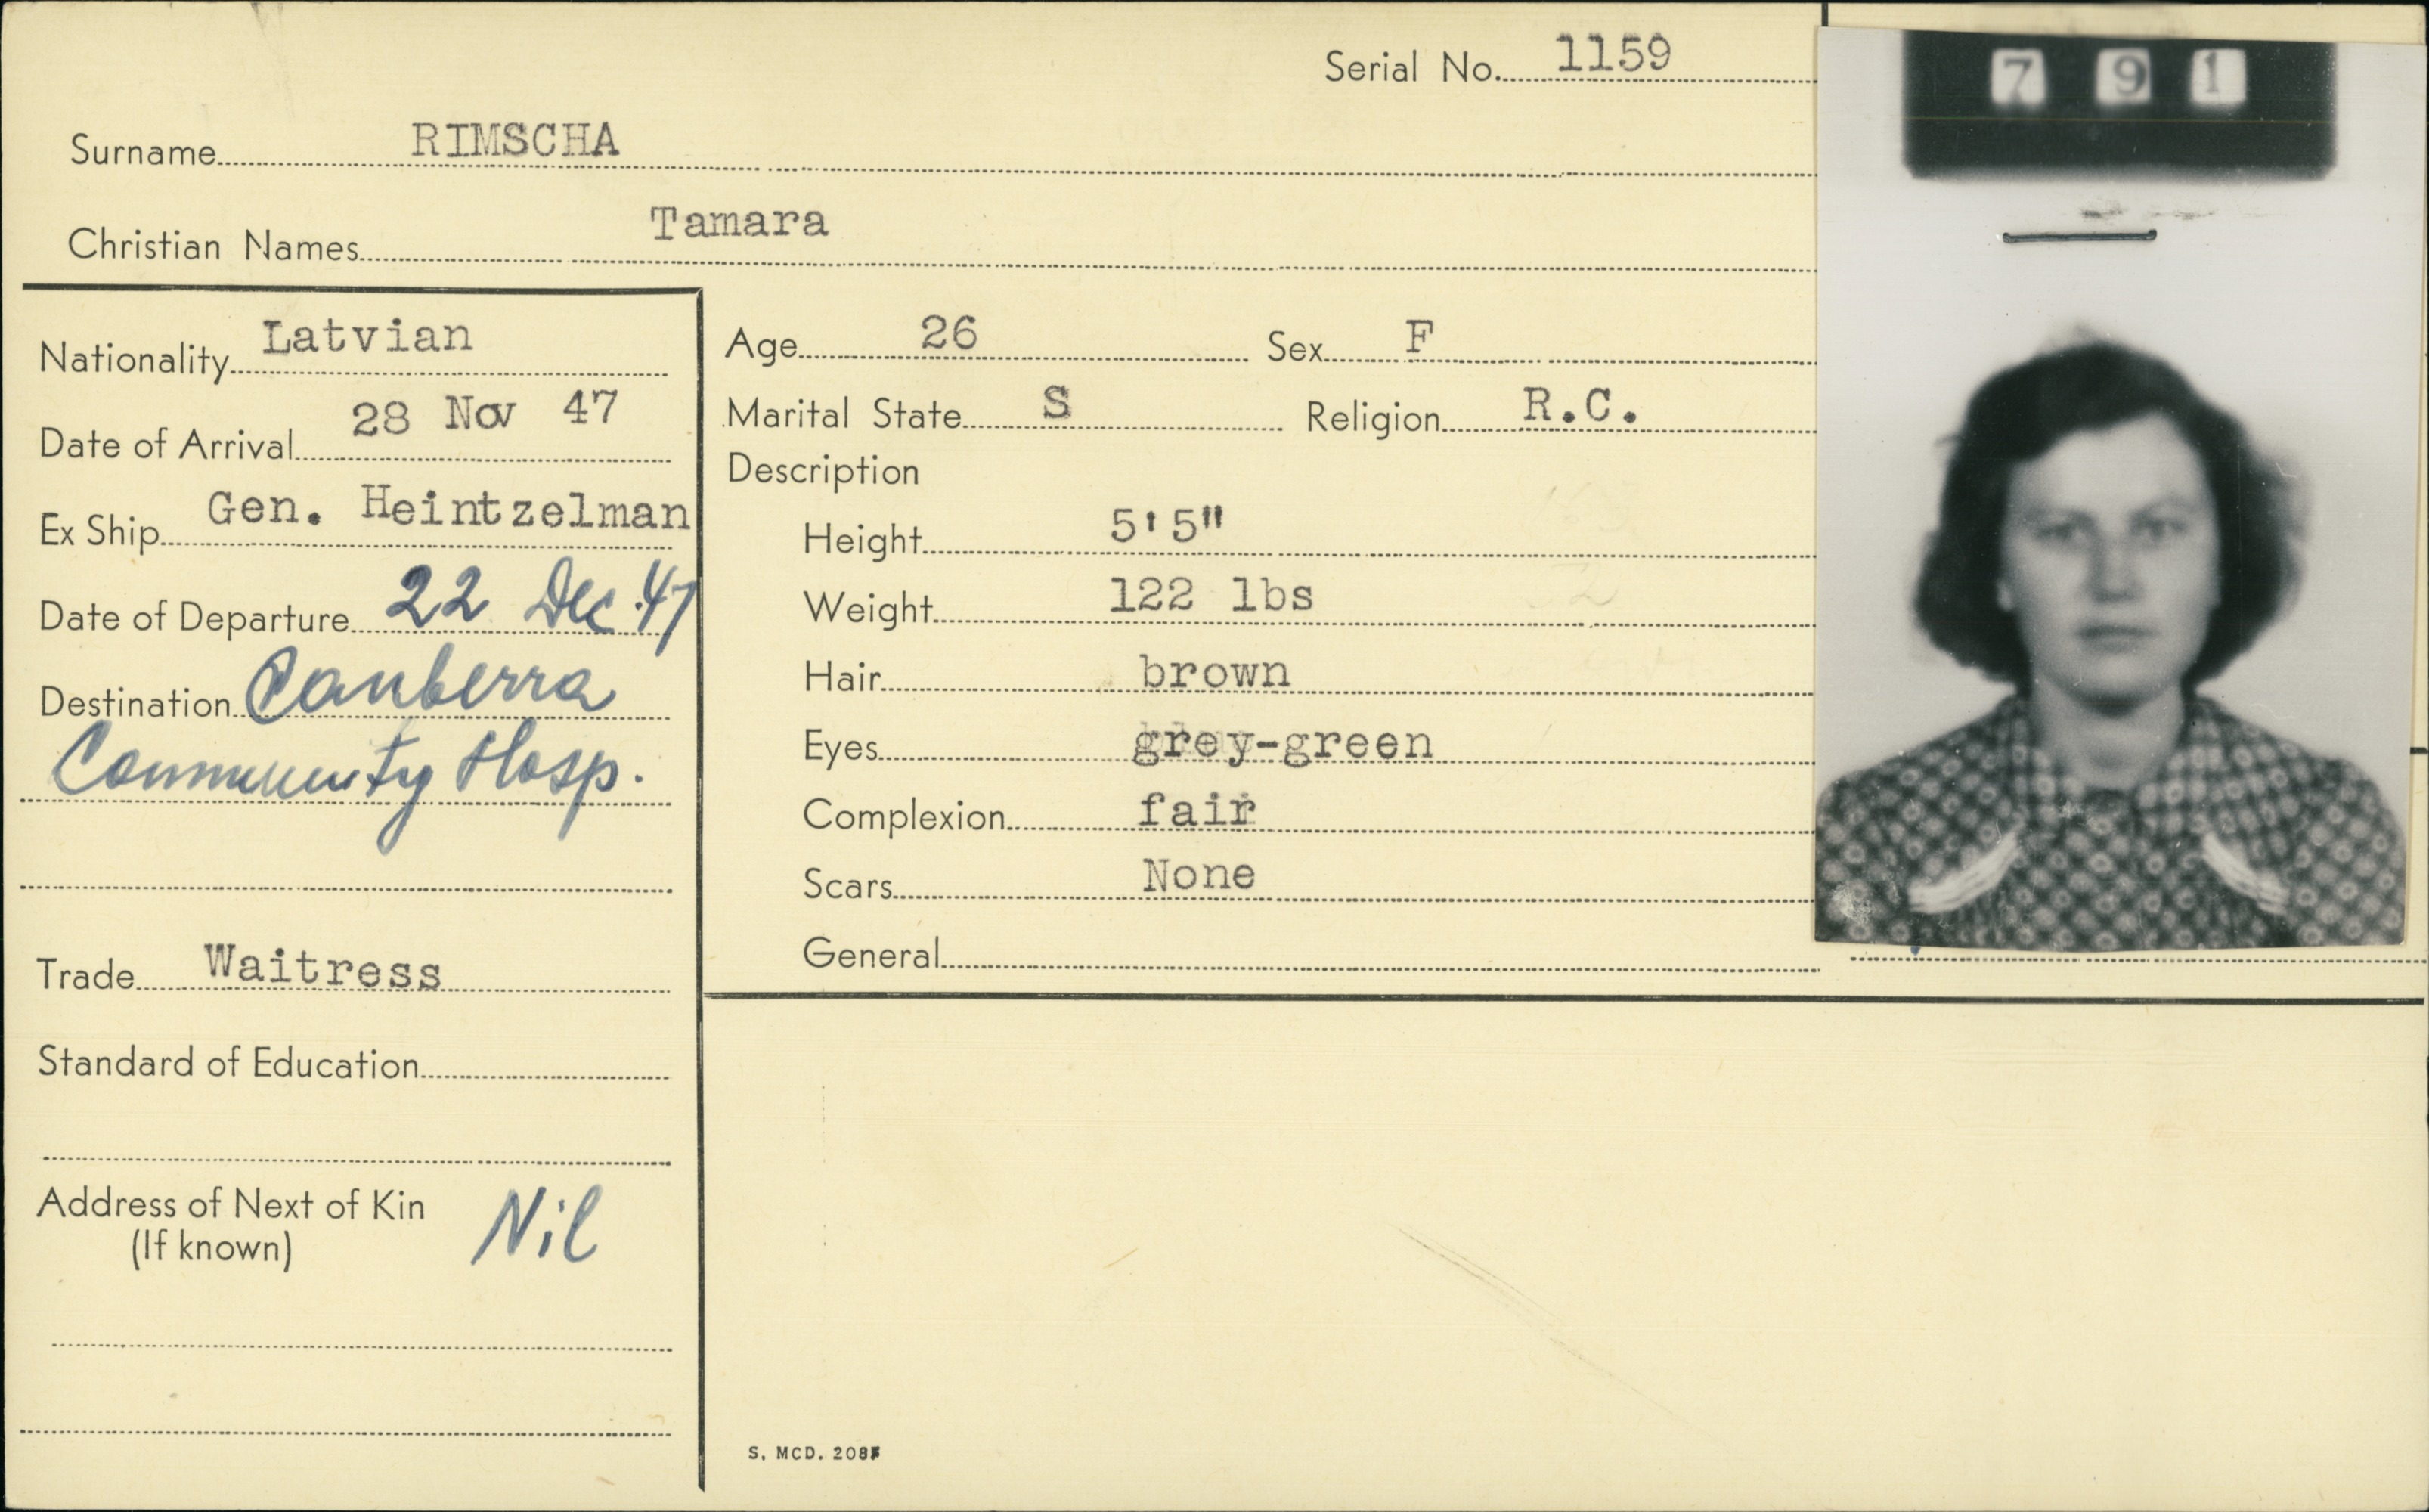 Serial No. 1159
7 9 1
Surname RIMSCHA
Christian Names Tamara
Nationality Latvian
Date of Arrival 28 Nov 47
Ex Ship Gen. Heintzelman
Date of Departure 22 Dec. 47
Destination Canberra
Community Hosp.
Trade Waitress
Standard of Education
Address of Next of Kin Nil
(If known)
Age 26 Sex F
Marital State S Religion R.C.
Description
Height 5'5"
Weight 122 lbs
Hair brown
Eyes grey-green
Complexion fair
Scars None
General
S. MCD. 208